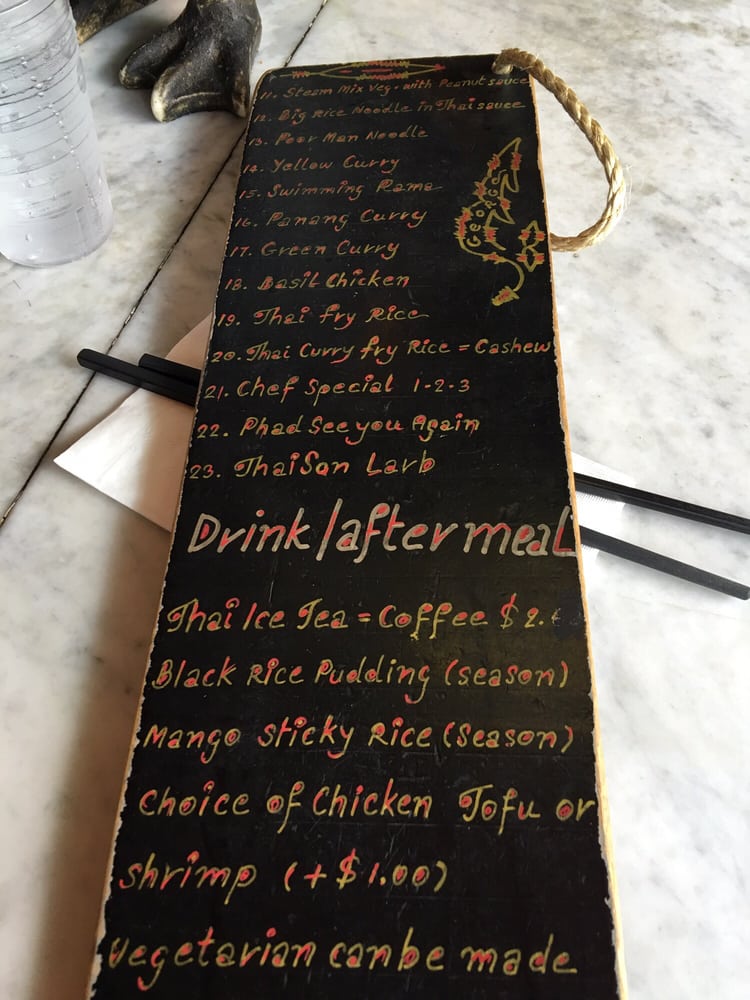 11. Steam Mix Veg. with Peanut sauce
12. Big Rice Noodle in Thai sauce
13. Poor Man Noodle
14. Yellow Curry
15. Swimming Rama
16. Panang Curry
17. Green Curry
18. Basil Chicken
19. Thai fry Rice
20. Thai Curry fry Rice = Cashew
21. Chef Special 1-2-3
22. Phad See you Again
23. Thai San Larb
Drink/after meal
Thai Ice Tea = Coffee $2.
Black Rice Pudding (season)
Mango Sticky Rice (Season)
Choice of Chicken Tofu or
Shrimp (+$1.00)
Vegetarian can be made